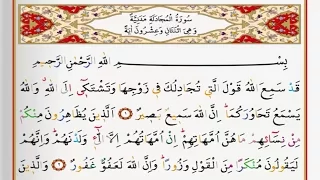 سُورَةُ الْمُجَادَلَةِ مَدَنِيَّةٌ
وَهِيَ اثْنَتَانِ وَعِشْرُونَ اٰيَةً
بِسْــــمِ اللّٰهِ الرَّحْمٰنِ الرَّحِيمِ
قَدْ سَمِعَ اللّٰهُ قَوْلَ الَّتٖي تُجَادِلُكَ فٖي زَوْجِهَا وَتَشْتَكٖٓي اِلَى اللّٰهِ وَاللّٰهُ
يَسْمَعُ تَحَاوُرَكُمَا اِنَّ اللّٰهَ سَمٖيعٌ بَصٖيرٌ ۝ اَلَّذٖينَ يُظَاهِرُونَ مِنْكُمْ
مِنْ نِسَٓائِهِمْ مَا هُنَّ اُمَّهَاتِهِمْ اِنْ اُمَّهَاتُهُمْ اِلَّا الّٰٓـٖٔي وَلَدْنَهُمْ وَاِنَّهُمْ
لَيَقُولُونَ مُنْكَرًا مِنَ الْقَوْلِ وَزُورًا وَاِنَّ اللّٰهَ لَعَفُوٌّ غَفُورٌ ۝ وَالَّذٖينَ